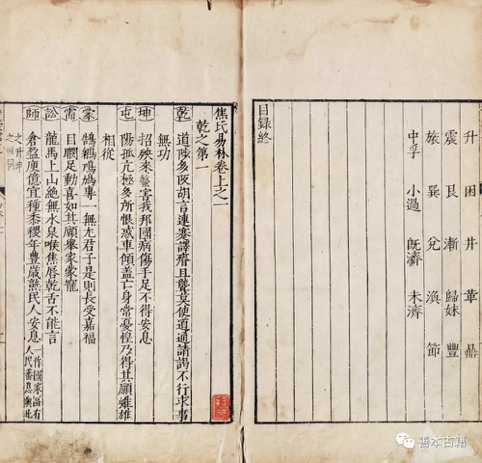 升 困 井 革 鼎
震 艮 漸 歸妹 豐
旅 巽 兌 渙 節
中孚 小過 既濟 未濟
目錄終
焦氏易林卷上之一
乾之第一
乾 道陟多阪胡言連蹇譯瘖且聾莫使道通請謁不行求事
無功
坤 招殃來螫害我邦國病傷手足不得安息
屯 陽孤亢極多所恨惑車傾蓋亡身常憂惶乃得其願雌雄
相從
蒙 鵠鵴鳲鳩專一無尤君子是則長受嘉福
需 目瞤足動喜如其願舉家蒙寵
訟 龍馬上山絕無水泉喉焦唇乾舌不能言
師 倉盈庾億宜種黍稷年豐歲熟民人安息 一作國家富有人民蕃息與比
之升井
善本古籍